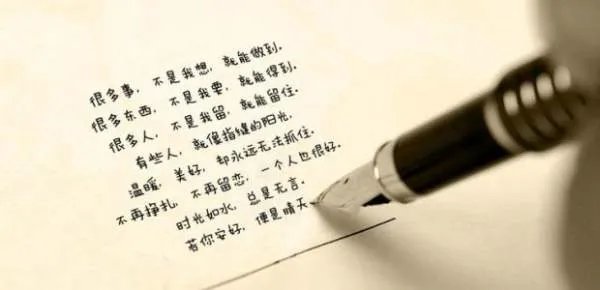 很多事，不是我想，就能做到。
很多东西，不是我要，就能得到。
很多人，不是我留，就能留住。
有些人，就像指缝的阳光，
温暖，美好，却永远无法抓住。
不再挣扎，不再留恋，一个人也很好。
时光如水，总是无言。
若你安好，便是晴天